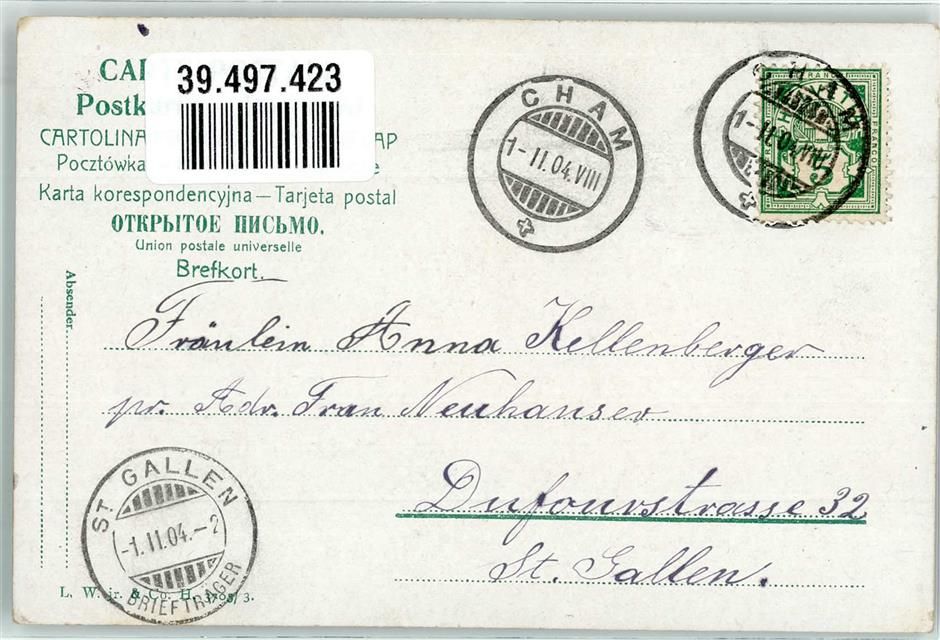 39.497.423
CA
Postk
CARTOLINA AP
Pocztówka e
Karta korespondencyjna — Tarjeta postal
ОТКРЫТОЕ ПИСЬМО.
Union postale universelle
Brefkort.
Absender.
CHAM
1-II.04.VIII
CHAM
1-II.04.VIII
FRANCO
Fräulein Anna Kellenberger
pr. Adr. Frau Neuhauser
Dufourstrasse 32
St. Gallen.
ST. GALLEN
-1.II.04.-2
BRIEFTRÄGER
L. W. jr. & Co. H. 3705/3.